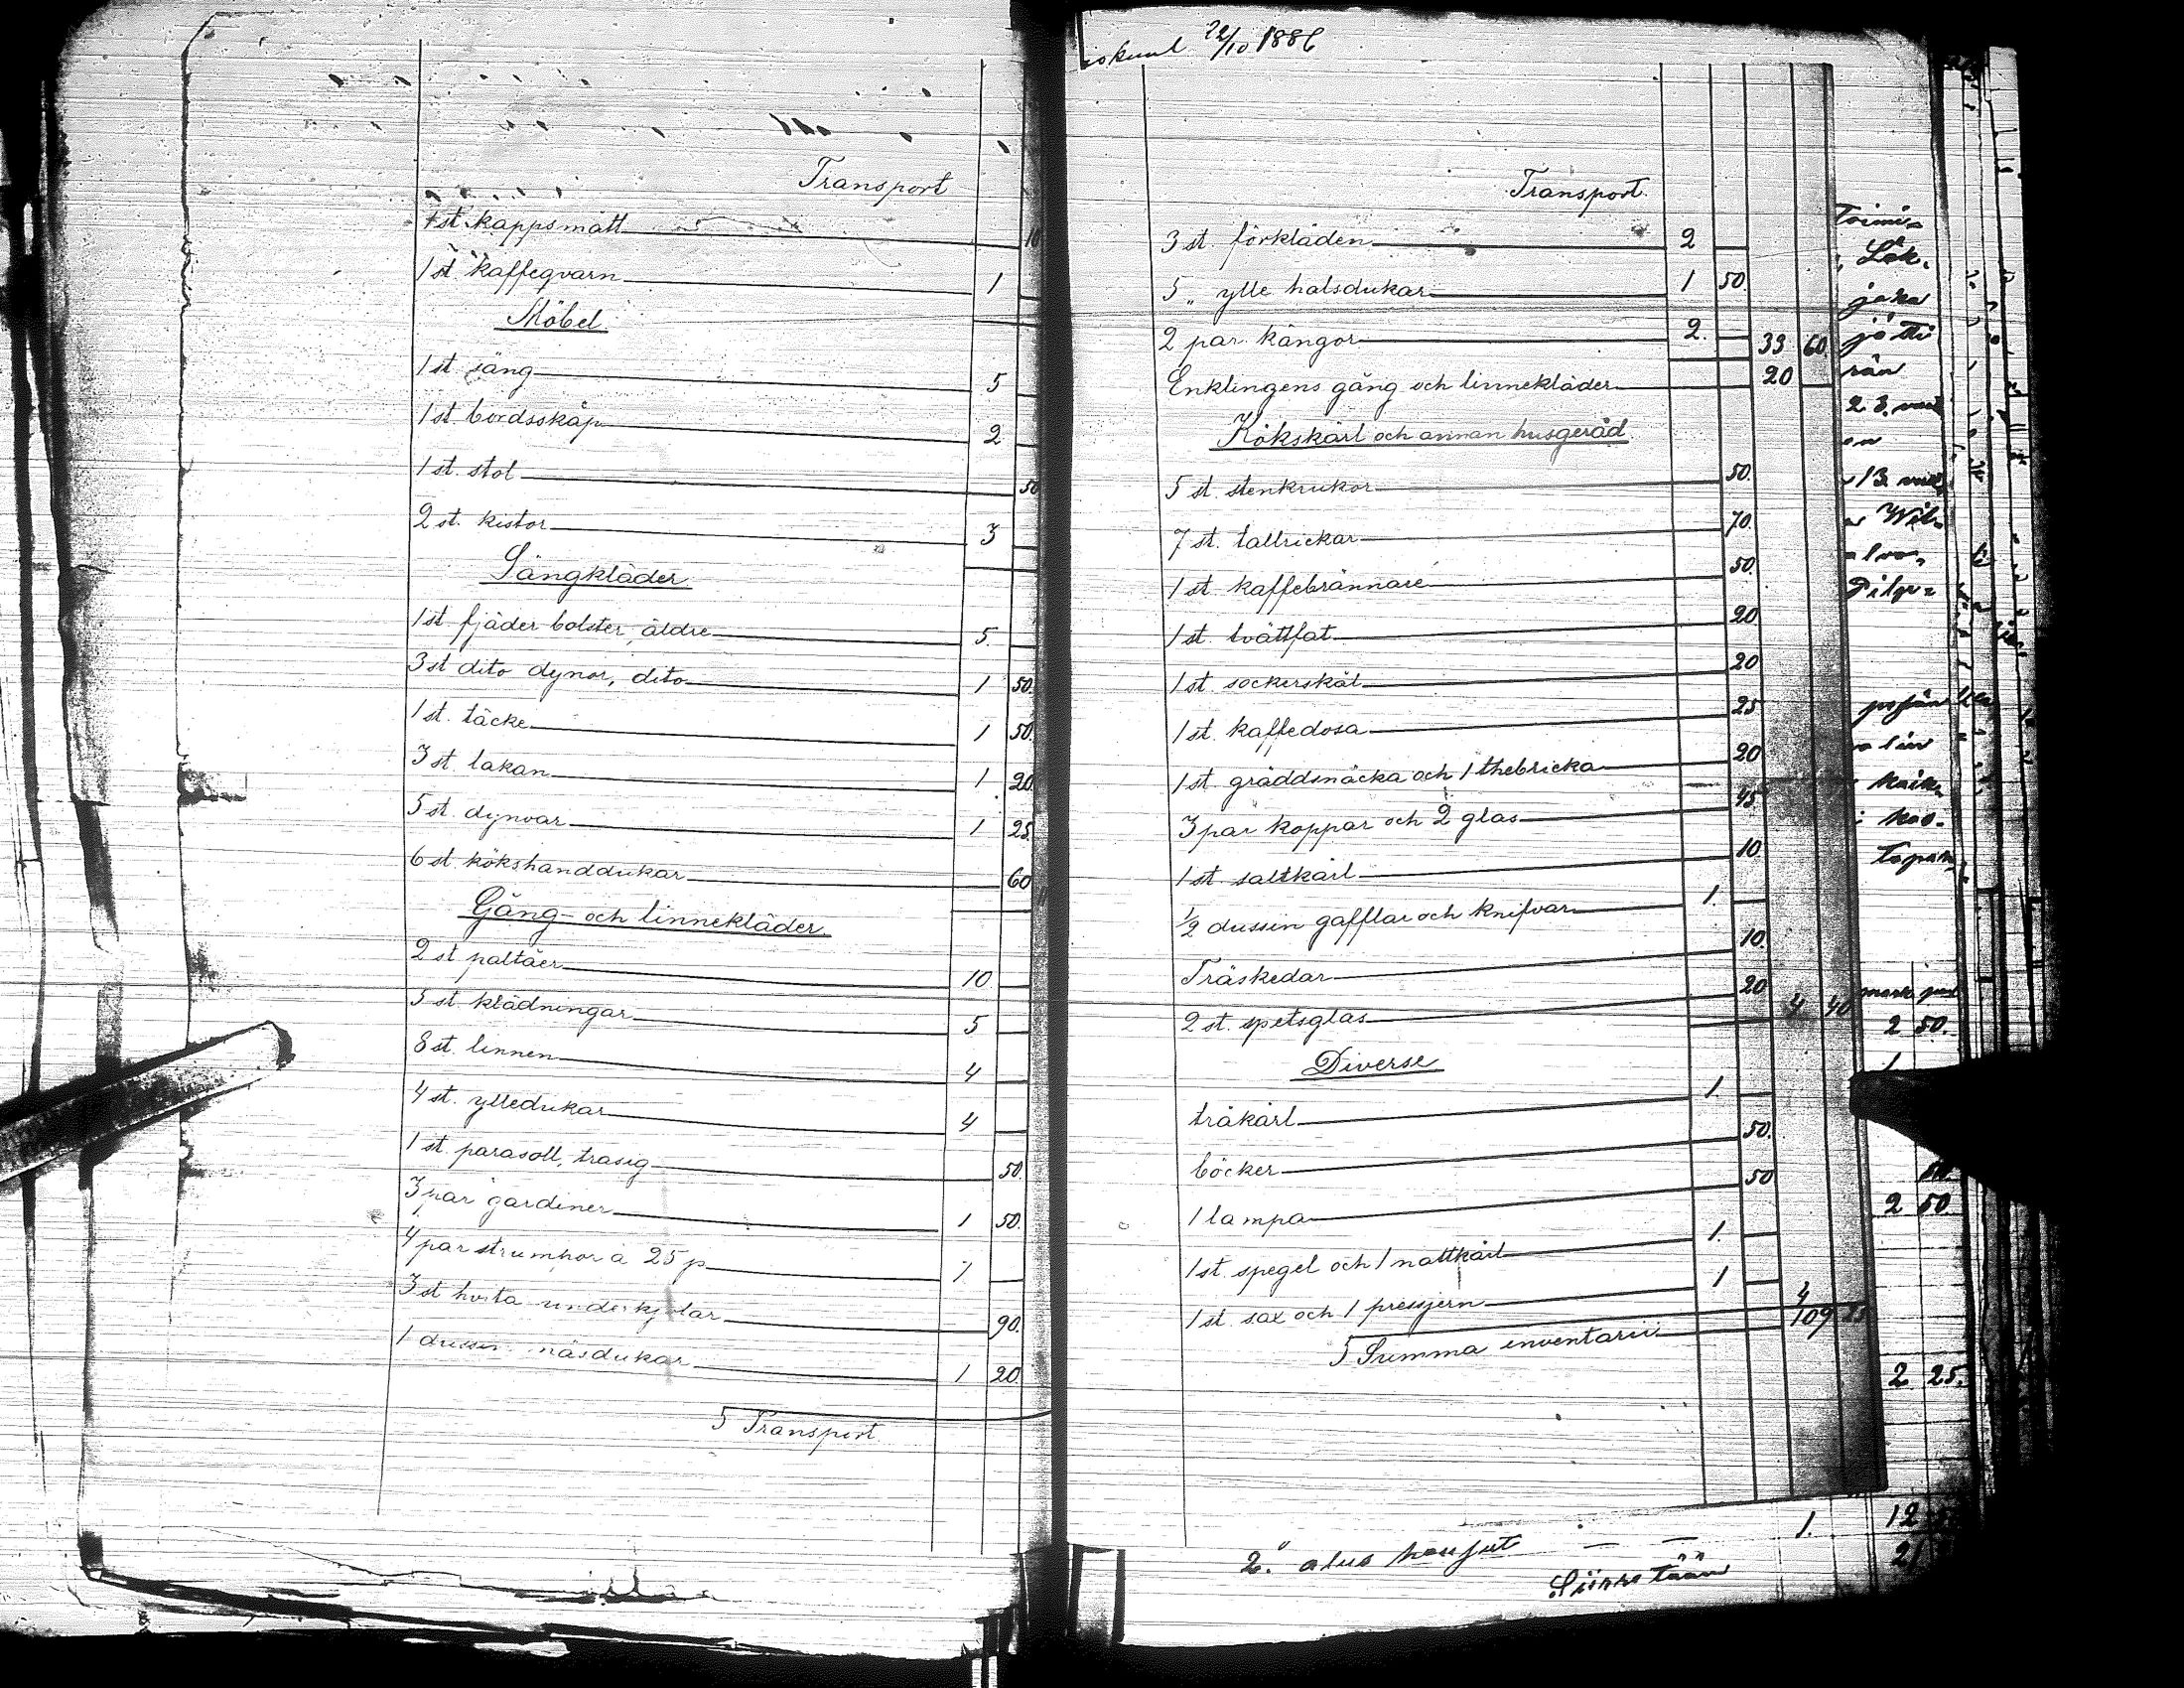 Transport
1 st. kappsmått 10
1 st kaffeqvarn 1
Möbel
1 st säng 5
1 st. bordsskåp 2
1 st. stol 50
2 st. kistor 3
Sängkläder
1 st. fjäder bolster, äldre 5.
3 st dito dynor, dito 1 50.
1 st. täcke 1 50.
3 st. lakan 1 20.
5 st. dynvar 1 25.
6 st kökshanddukar 60
Gång- och linnekläder
2 st paltåer 10
5 st klädningar 5
8 st. linnen 4
4 st. ylledukar 4
1 st. parasoll, trasig 50.
3 par gardiner 1 50.
4 par strumpor à 25 p 1
3 st hvita underkjolar 90.
1 dussin näsdukar 1 20.
5 Transport
22/10 1886
Transport
3 st. förkläden 2
5 „ ylle halsdukar 1 50
2 par kängor 2. 33 60.
Enklingens gång och linnekläder 20
Kökskärl och annan husgeråd
5 st. stenkrukor 50.
7 st. tallrickar 70.
1 st. kaffebrännare 50.
1 st. tvättfat 20
1 st. sockerskål 20
1 st. kaffedosa 25
1 st. gräddsnäcka och 1 thebricka 20
3 par koppar och 2 glas 45
1 st. saltkärl 10
1/2 dussin gafflar och knifvar 1.
Träskedar 10.
2 st. spetsglas 20 4 40
Diverse
träkärl 1.
böcker 50.
1 lampa 50
1 st. spegel och 1 nattkärl 1.
1 st. sax och 1 pressjern 1 4
5 Summa inventarii 109 25
2. alus housut 1.
Siirretään
jätti
2 50.
2 50.
2 25.
12